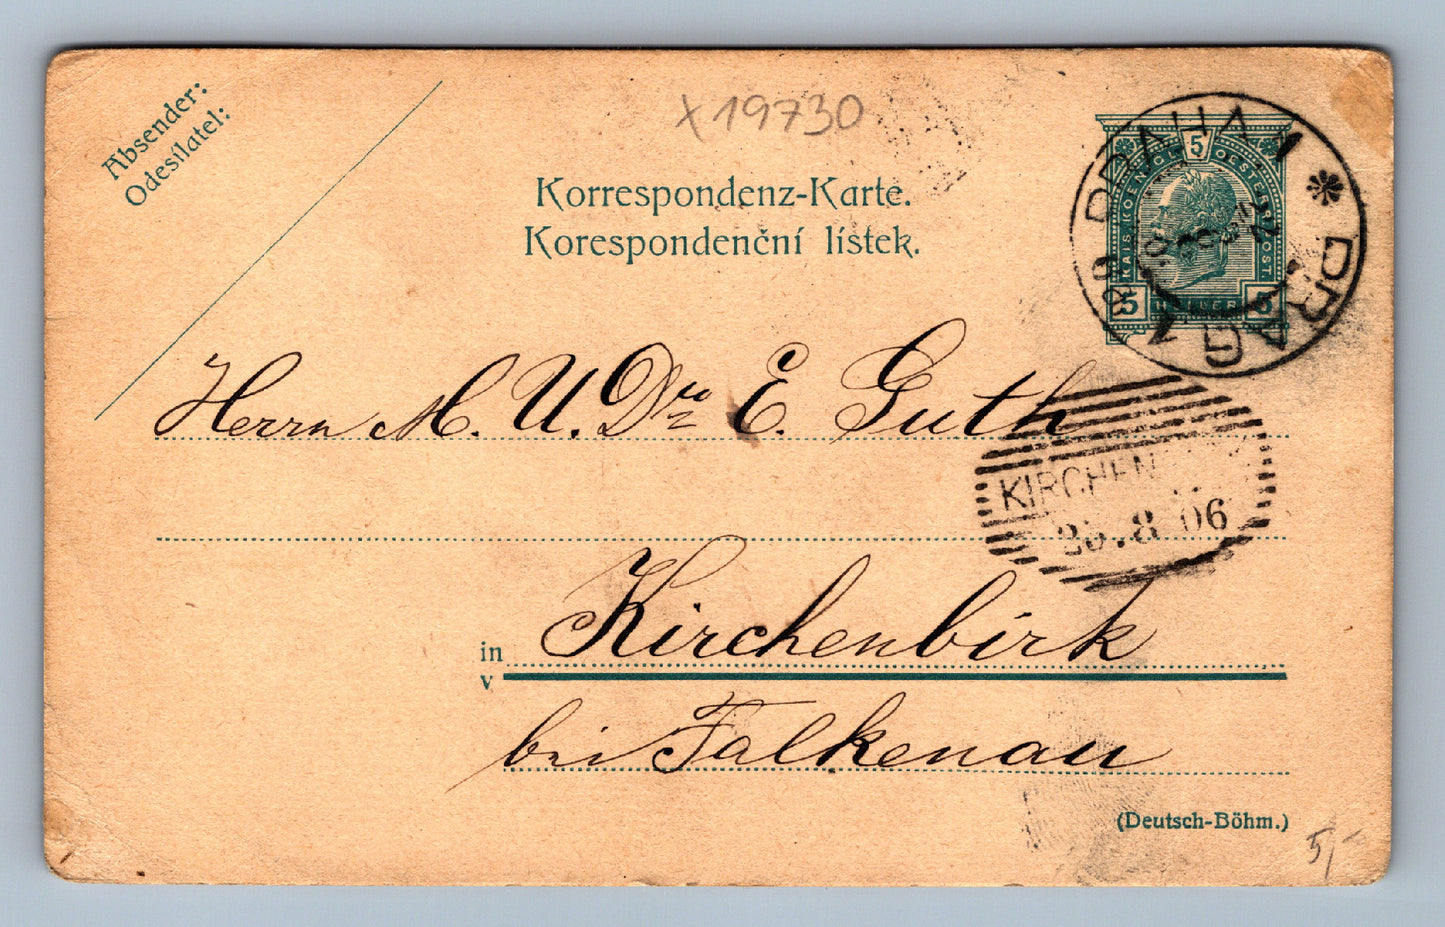 Absender:
Odesílatel:
x19730
Korrespondenz-Karte.
Korespondenční lístek.
5
KAIS. KOENIGL. OESTERR. POST.
5 HELLER 5
PRAHA 1 * PRAG 1
Herrn M. U. Dr E. Guth
KIRCHEN
25.8 06
in Kirchenbirk
v
bei Falkenau
(Deutsch-Böhm.)
5/-